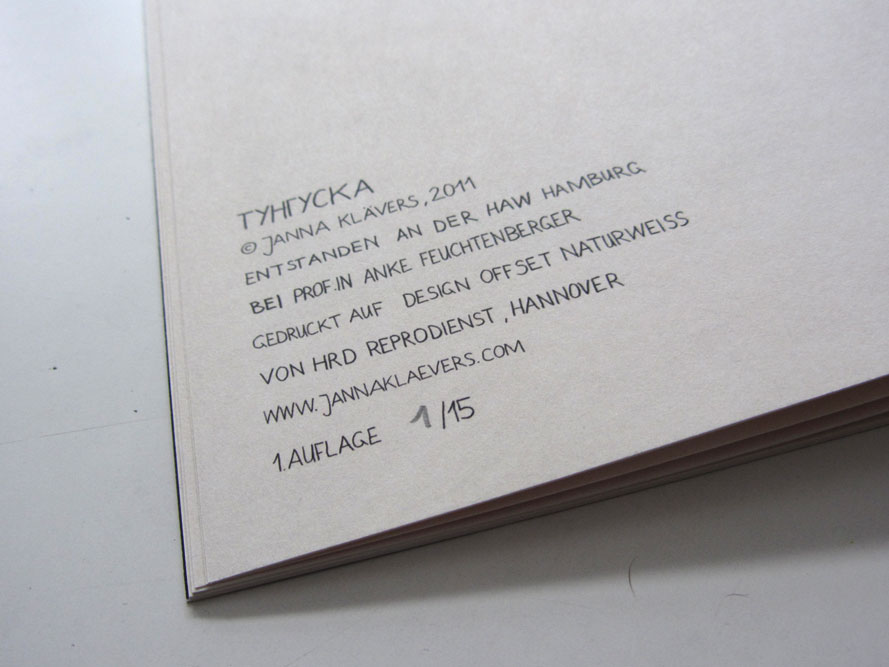 ТУНГУСКА
© JANNA KLÄVERS, 2011
ENTSTANDEN AN DER HAW HAMBURG
BEI PROF.IN ANKE FEUCHTENBERGER
GEDRUCKT AUF DESIGN OFFSET NATURWEISS
VON HRD REPRODIENST, HANNOVER
WWW.JANNAKLAEVERS.COM
1. AUFLAGE 1/15